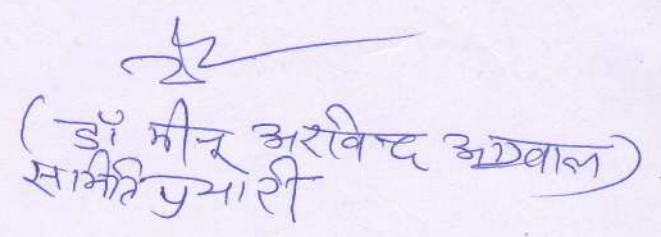 (डॉ मीनू अरविन्द अग्रवाल)
समिति प्रभारी